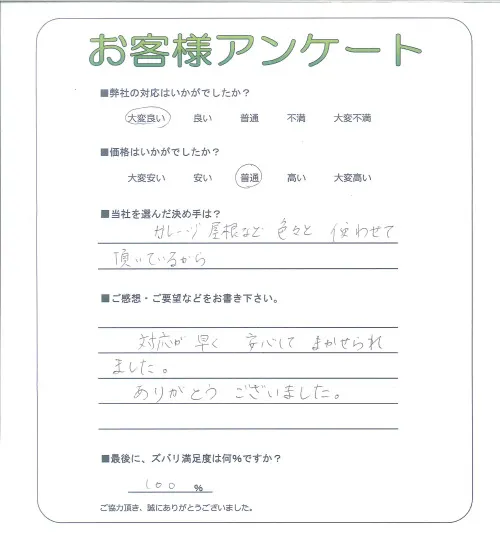 お客様アンケート
■弊社の対応はいかがでしたか？
大変良い 良い 普通 不満 大変不満
■価格はいかがでしたか？
大変安い 安い 普通 高い 大変高い
■当社を選んだ決め手は？
ガレージ屋根など 色々と 使わせて
頂いているから
■ご感想・ご要望などをお書き下さい。
対応が 早く 安心して まかせられ
ました。
ありがとう ございました。
■最後に、ズバリ満足度は何％ですか？
100 ％
ご協力頂き、誠にありがとうございました。